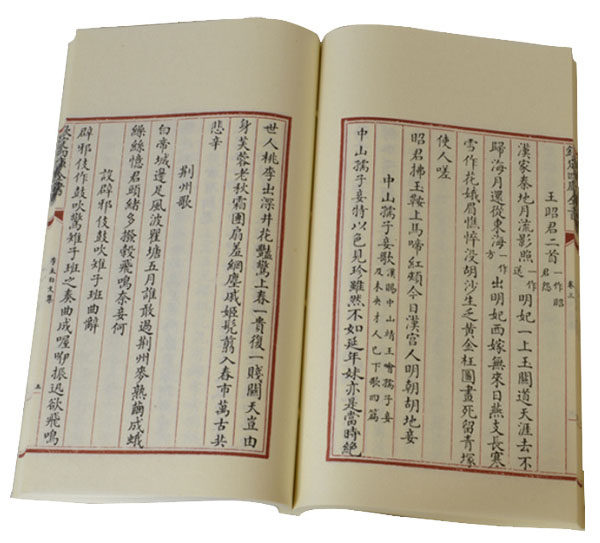 欽定四庫全書
卷三
王昭君二首一作昭君怨
漢家秦地月流影照一作送明妃一上玉關道天涯去不
歸海月還從東海一作方出明妃西嫁無來日燕支長寒
雪作花娥眉憔悴没胡沙生乏黃金枉圖畫死留青塚
使人嗟
昭君拂玉鞍上馬啼紅頰今日漢宮人明朝胡地妾
中山孺子妾歌漢賜中山靖王噲孺子妾及未央才人巳下歌四篇
中山孺子妾特以色見珍雖然不如延年妹亦是當時絶
世人桃李出深井花豔驚上春一貴復一賤關天豈由
身芙蓉老秋霜團扇羞網塵戚姬髠翦入舂市萬古共
悲辛
荆州歌
白帝城邊足風波瞿塘五月誰敢過荆州麥熟繭成蛾
繰絲憶君頭緒多撥穀飛鳴奈妾何
設辟邪伎鼓吹雉子班曲辭
辟邪伎作鼓吹驚雉子班之奏曲成喔咿振迅欲飛鳴
欽定四庫全書
李太白文集
五